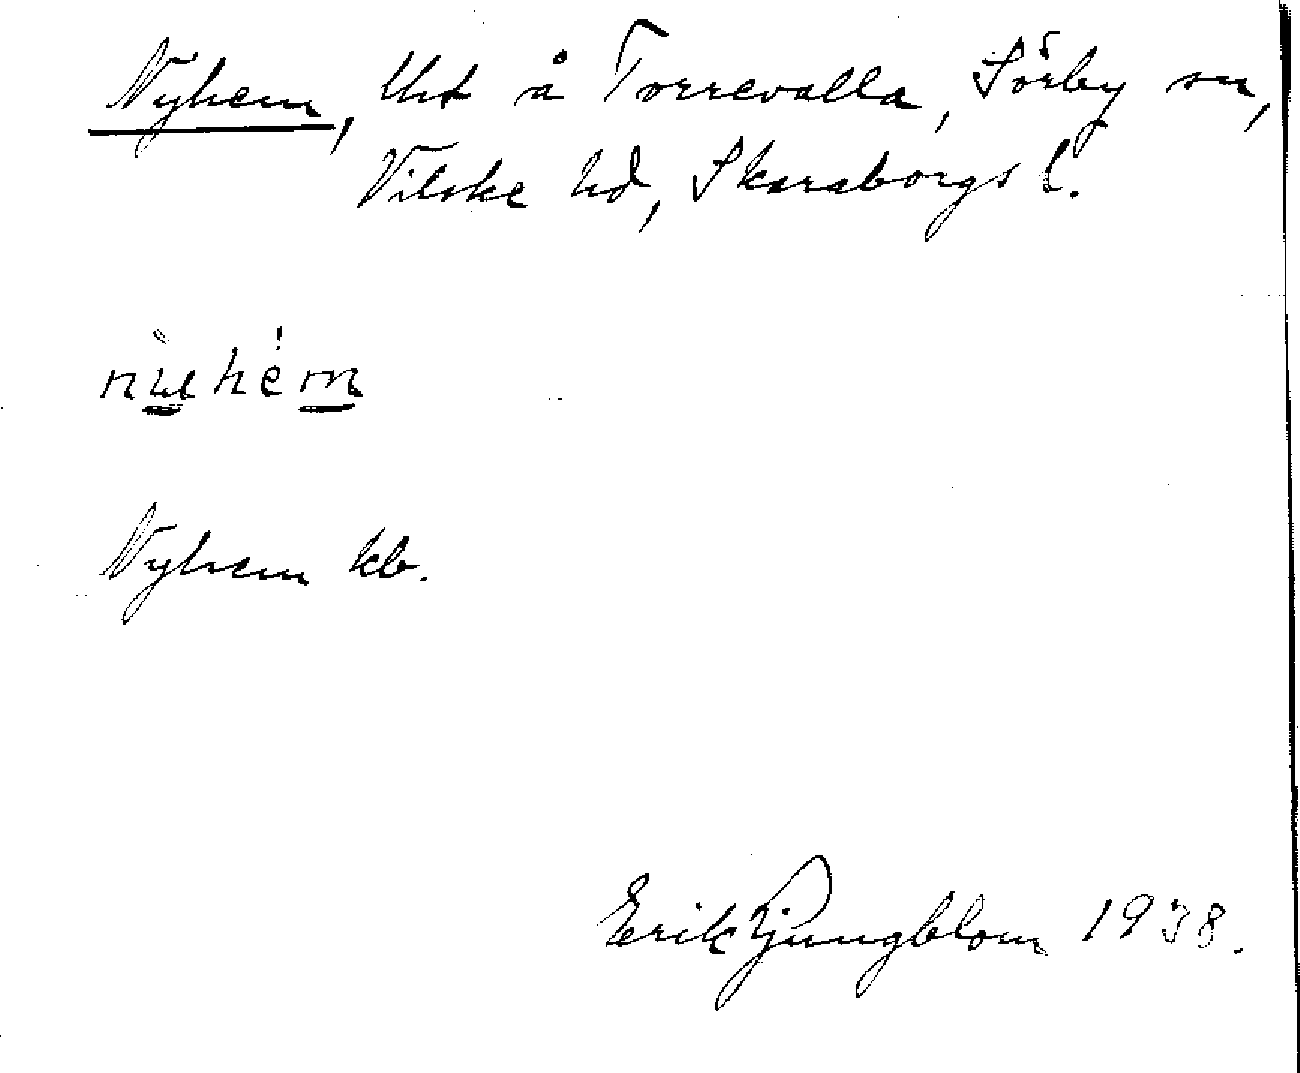 Nyhem, Uht å Torrevalla, Sörby sn,
Vilske hd, Skaraborgs l.
Nyhem kb.
Erik Ljungblom 1938.